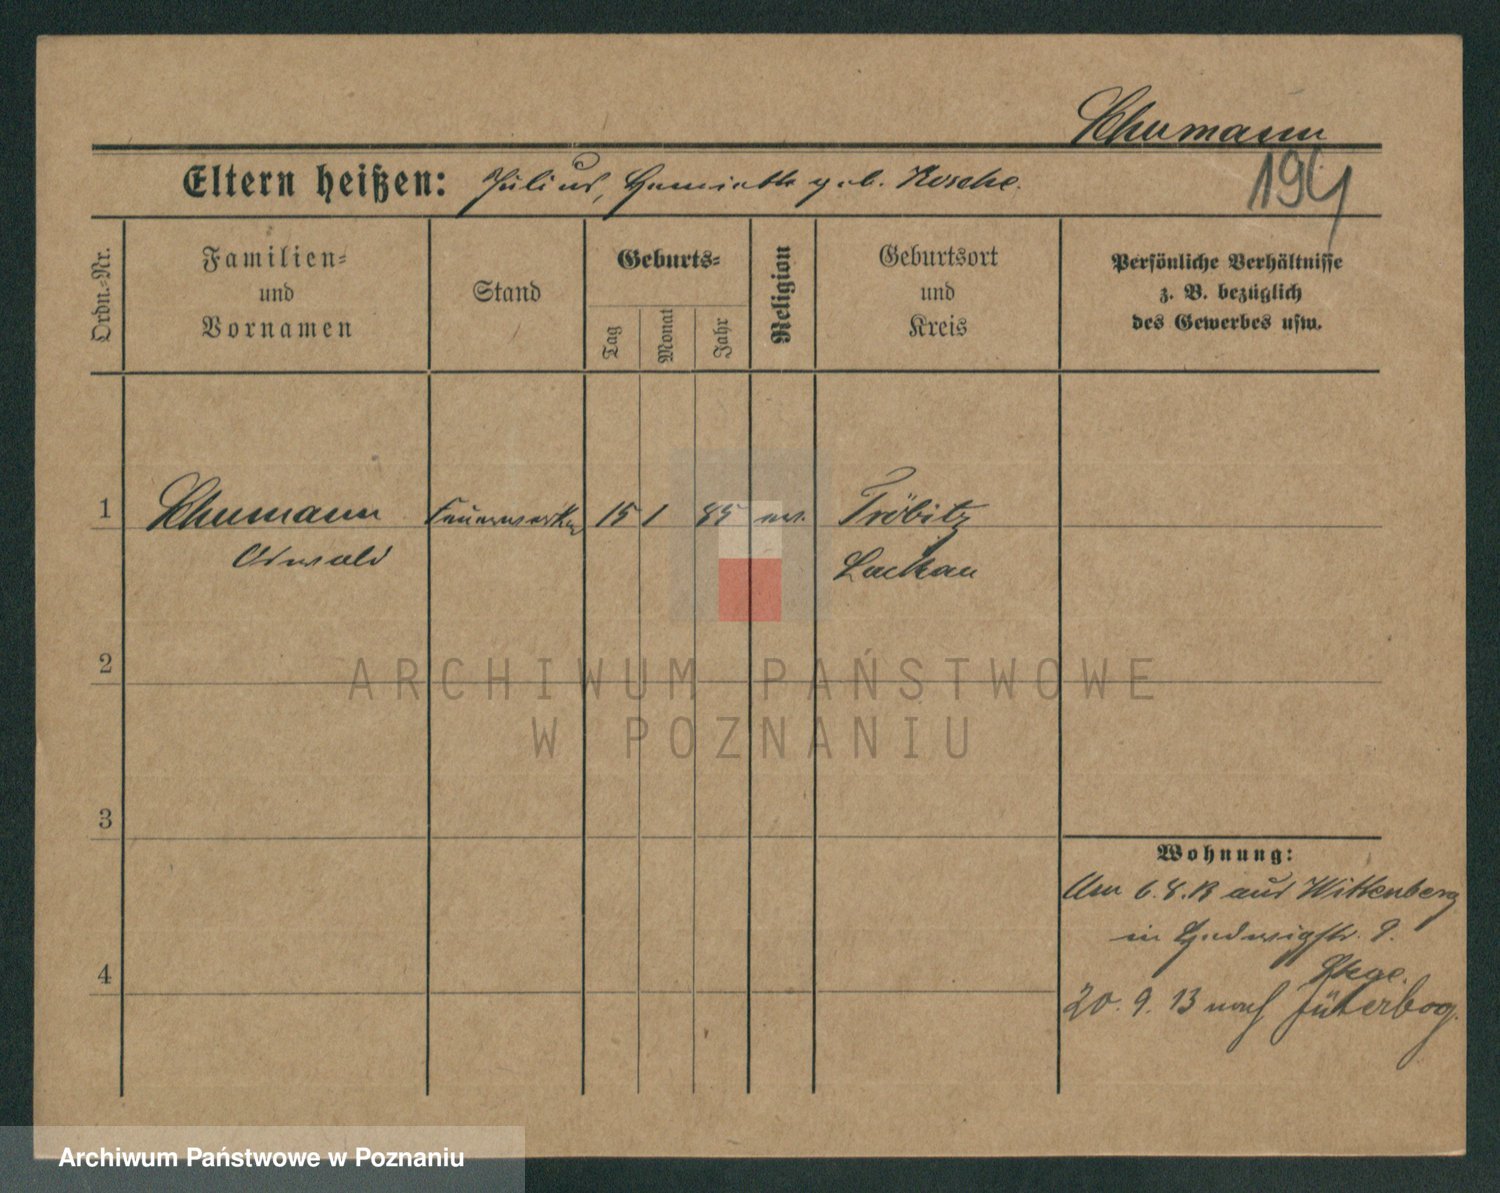 Schumann
194
Eltern heißen: Julius, Henriette geb. Kosche.
Ordn.-Nr.
Familien- und Vornamen
Stand
Geburts-
Tag
Monat
Jahr
Religion
Geburtsort und Kreis
Persönliche Verhältnisse
z. B. bezüglich
des Gewerbes usw.
1 Schumann Feuerwerker 15 1 85 ev. Tröbitz
Oswald Luckau
2
3
4
Wohnung:
Am 6.8.13 aus Wittenberg
in Hedwigstr. 9.
20. 9. 13 nach Jüterbog.
ARCHIWUM PAŃSTWOWE
W POZNANIU
Archiwum Państwowe w Poznaniu